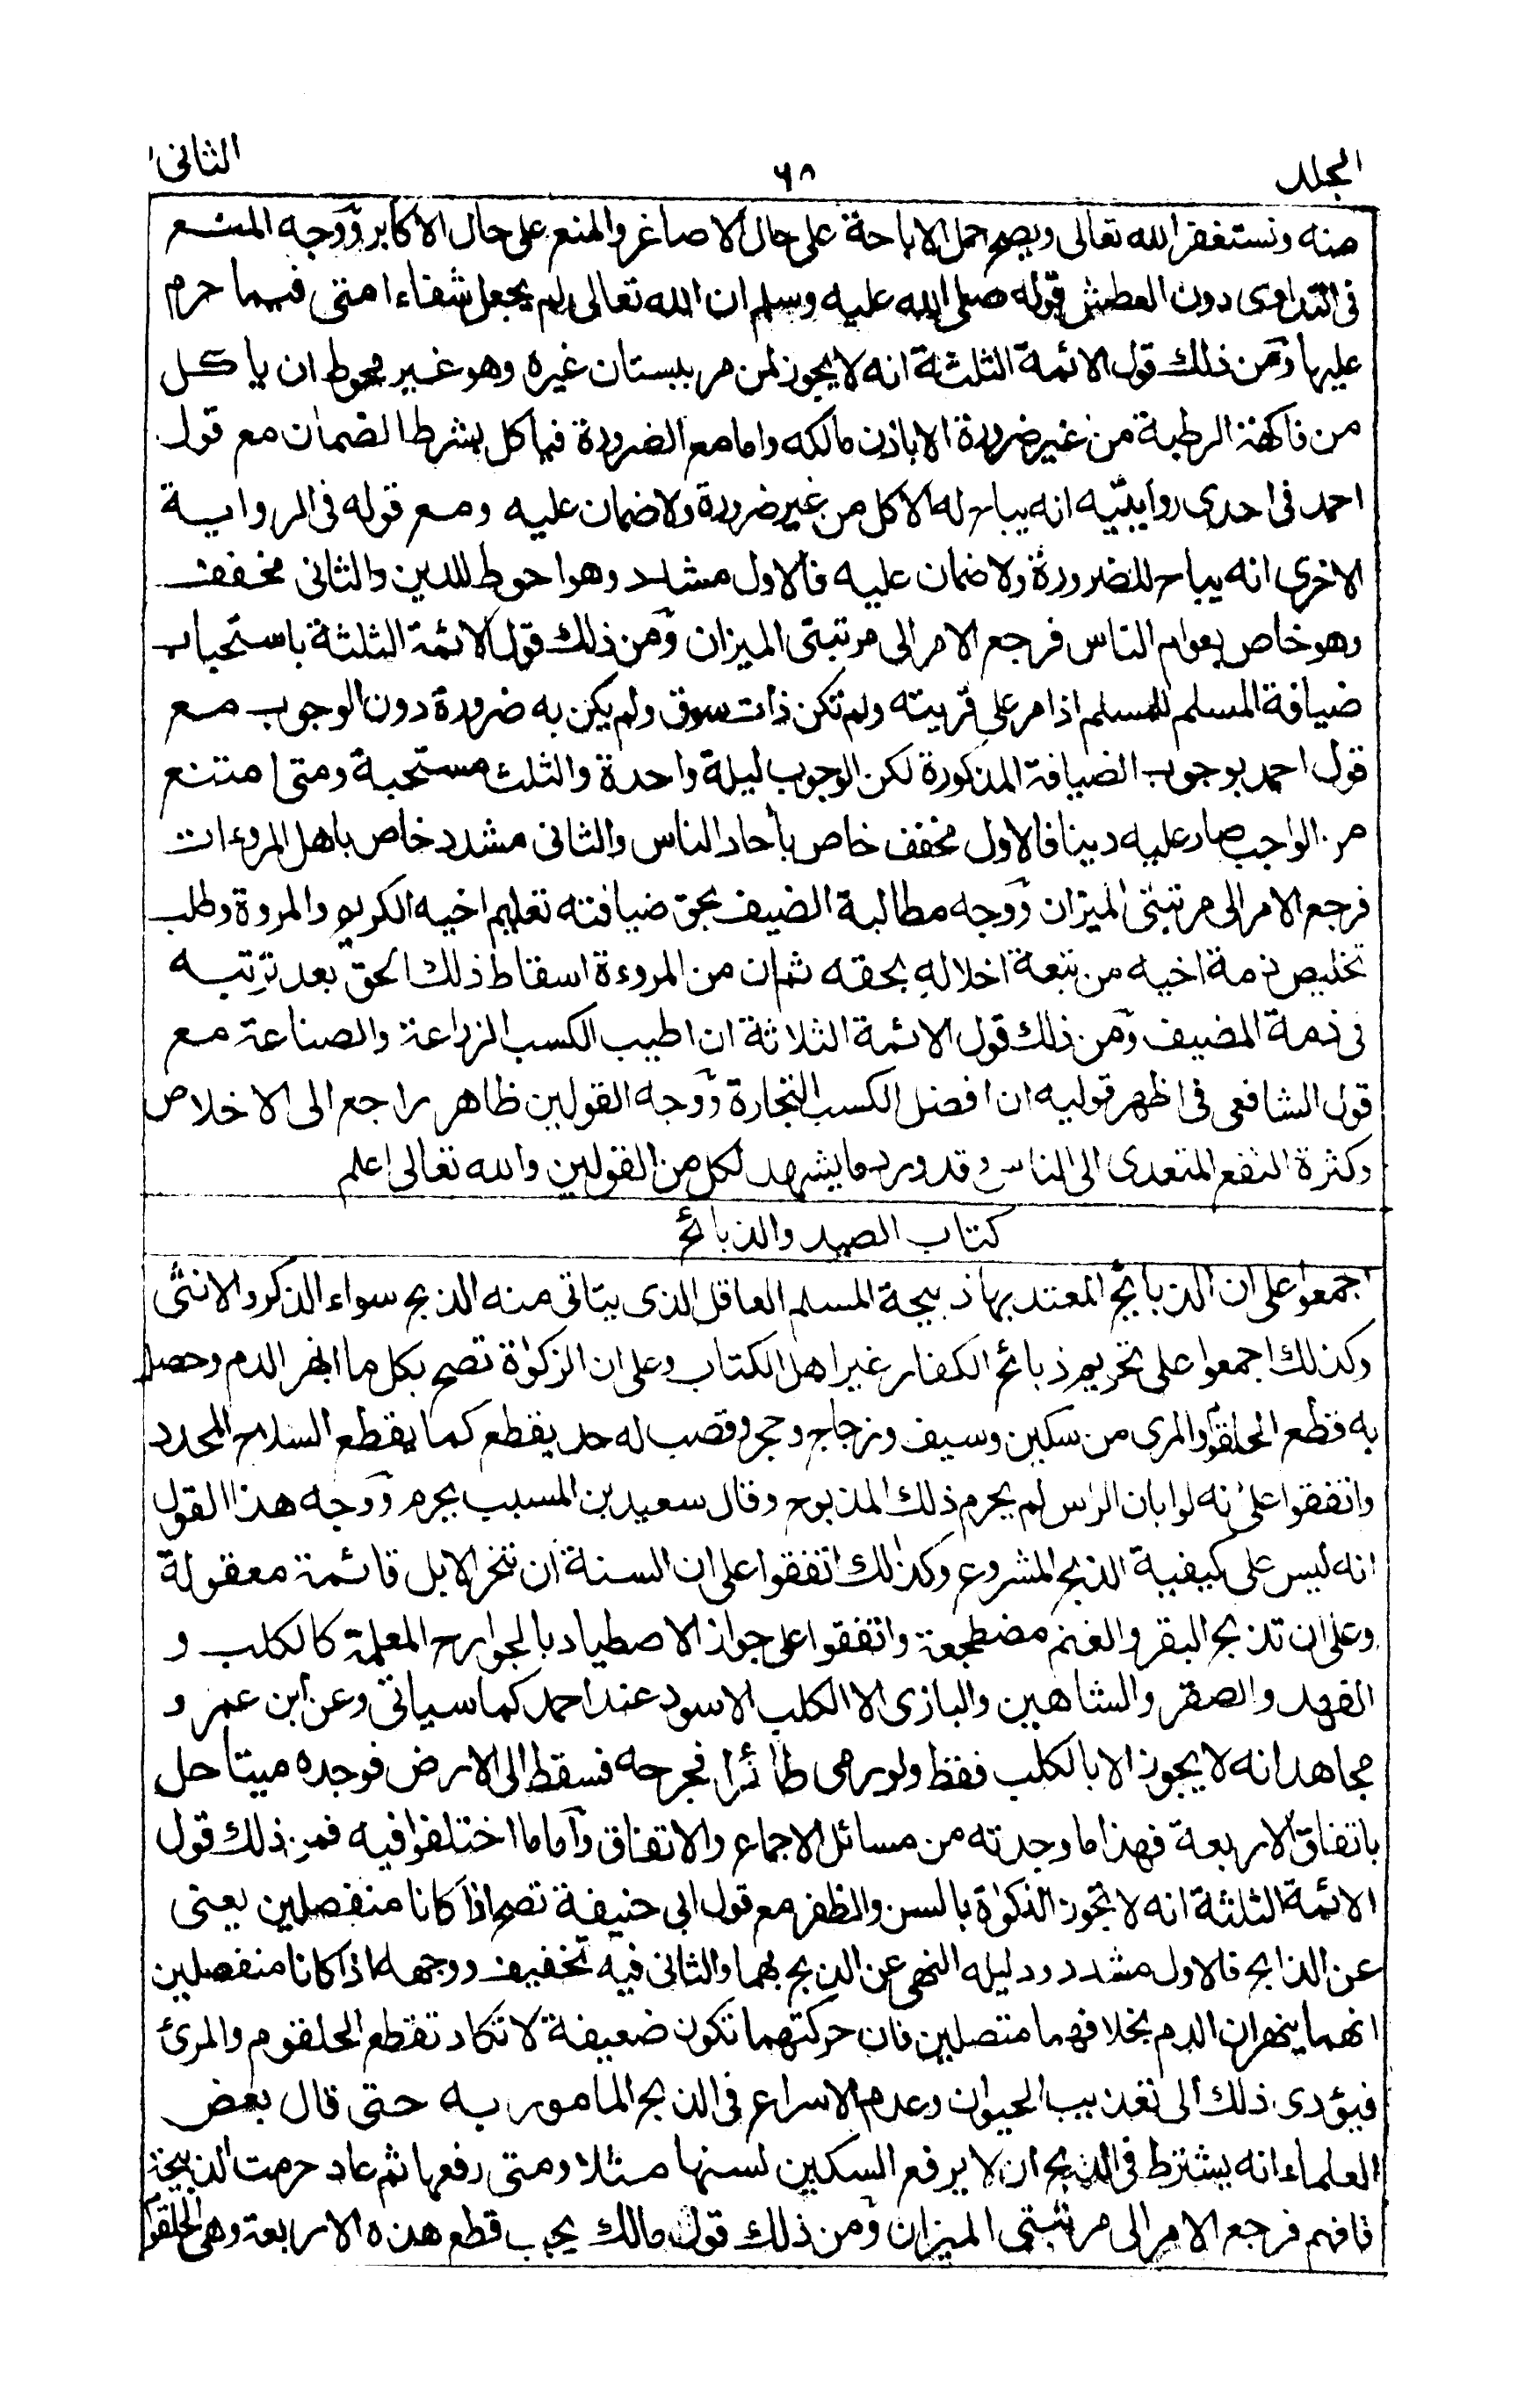 المجلد
٦٨
الثانى
منه ونستغفر الله تعالى ويصح حمل الاباحة على حال الاصاغر والمنع على حال الاكابر ووجه المنع
فى التداوى دون العطش قوله صلى الله عليه وسلم ان الله تعالى لم يجعل شفاء امتى فيما حرم
عليها ومن ذلك قول الائمة الثلثة انه لا يجوز لمن مر ببستان غيره وهو غير محوط ان ياكل
من فاكهته الرطبة من غير ضرورة الا باذن مالكه واما مع الضرورة فياكل بشرط الضمان مع قول
احمد فى احدى روايتيه انه يباح له الاكل من غير ضرورة ولا ضمان عليه ومع قوله فى الرواية
الاخرى انه يباح للضرورة ولا ضمان عليه فالاول مشدد وهو احوط للدين والثانى مخفف
وهو خاص بعوام الناس فرجع الامر الى مرتبتى الميزان ومن ذلك قول الائمة الثلثة باستحباب
ضيافة المسلم للمسلم اذا مر على قريته ولم تكن ذات سوق ولم يكن به ضرورة دون الوجوب مع
قول احمد بوجوب الضيافة المذكورة لكن الوجوب ليلة واحدة والثلث مستحبة ومتى امتنع
من الواجب صار عليه دينا فالاول مخفف خاص بأحاد الناس والثانى مشدد خاص باهل المروءات
فرجع الامر الى مرتبتى الميزان ووجه مطالبة الضيف بحق ضيافته تعليم اخيه الكريم والمروة وطلب
تخليص ذمة اخيه من تبعة اخلاله بحقه ثم ان من المروءة اسقاط ذلك الحق بعد ترتبه
فى ذمة المضيف ومن ذلك قول الائمة الثلاثة ان اطيب الكسب الزراعة والصناعة مع
قول الشافعى فى اظهر قوليه ان افضل الكسب التجارة ووجه القولين ظاهر راجع الى الاخلاص
وكثرة النفع المتعدى الى الناس وقد ورد ما يشهد لكل من القولين والله تعالى اعلم
كتاب الصيد والذبائح
اجمعوا على ان الذبائح المعتد بها ذبيحة المسلم العاقل الذى يتاتى منه الذبح سواء الذكر والانثى
وكذلك اجمعوا على تحريم ذبائح الكفار غير اهل الكتاب وعلى ان الزكوٰة تصح بكل ما انهر الدم وحصل
به قطع الحلقوم والمرى من سكين وسيف وزجاج وحجر وقصب له حد يقطع كما يقطع السلاح المحدد
واتفقوا على انه لو ابان الراس لم يحرم ذلك المذبوح وقال سعيد بن المسيب يحرم ووجه هذا القول
انه ليس على كيفية الذبح المشروع وكذلك اتفقوا على ان السنة ان تنحر الابل قائمة معقولة
وعلى ان تذبح البقر والغنم مضطجعة واتفقوا على جواز الاصطياد بالجوارح المعلمة كالكلب و
الفهد والصقر والشاهين والبازى الا الكلب الاسود عند احمد كما سياتى وعن ابن عمر و
مجاهد انه لا يجوز الا بالكلب فقط ولو رمى طائرا فجرحه فسقط الى الارض فوجده ميتا حل
باتفاق الاربعة فهذا ما وجدته من مسائل الاجماع والاتفاق وأما ما اختلفوا فيه فمن ذلك قول
الائمة الثلثة انه لا تجوز الذكوٰة بالسن والظفر مع قول ابى حنيفة تصح اذا كانا منفصلين يعنى
عن الذابح فالاول مشدد ودليله النهى عن الذبح بهما والثانى فيه تخفيف ووجهه اذا كانا منفصلين
انهما ينهران الدم بخلافهما متصلين فان حركتهما تكون ضعيفة لا تكاد تقطع الحلقوم والمرئ
فيؤدى ذلك الى تعذيب الحيوان وعدم الاسراع فى الذبح المامور به حتى قال بعض
العلماء انه يشترط فى الذبح ان لا يرفع السكين لسنها مثلا ومتى رفعها ثم عاد حرمت الذبيحة
فافهم فرجع الامر الى مرتبتى الميزان ومن ذلك قول مالك يجب قطع هذه الاربعة وهى الحلقوم